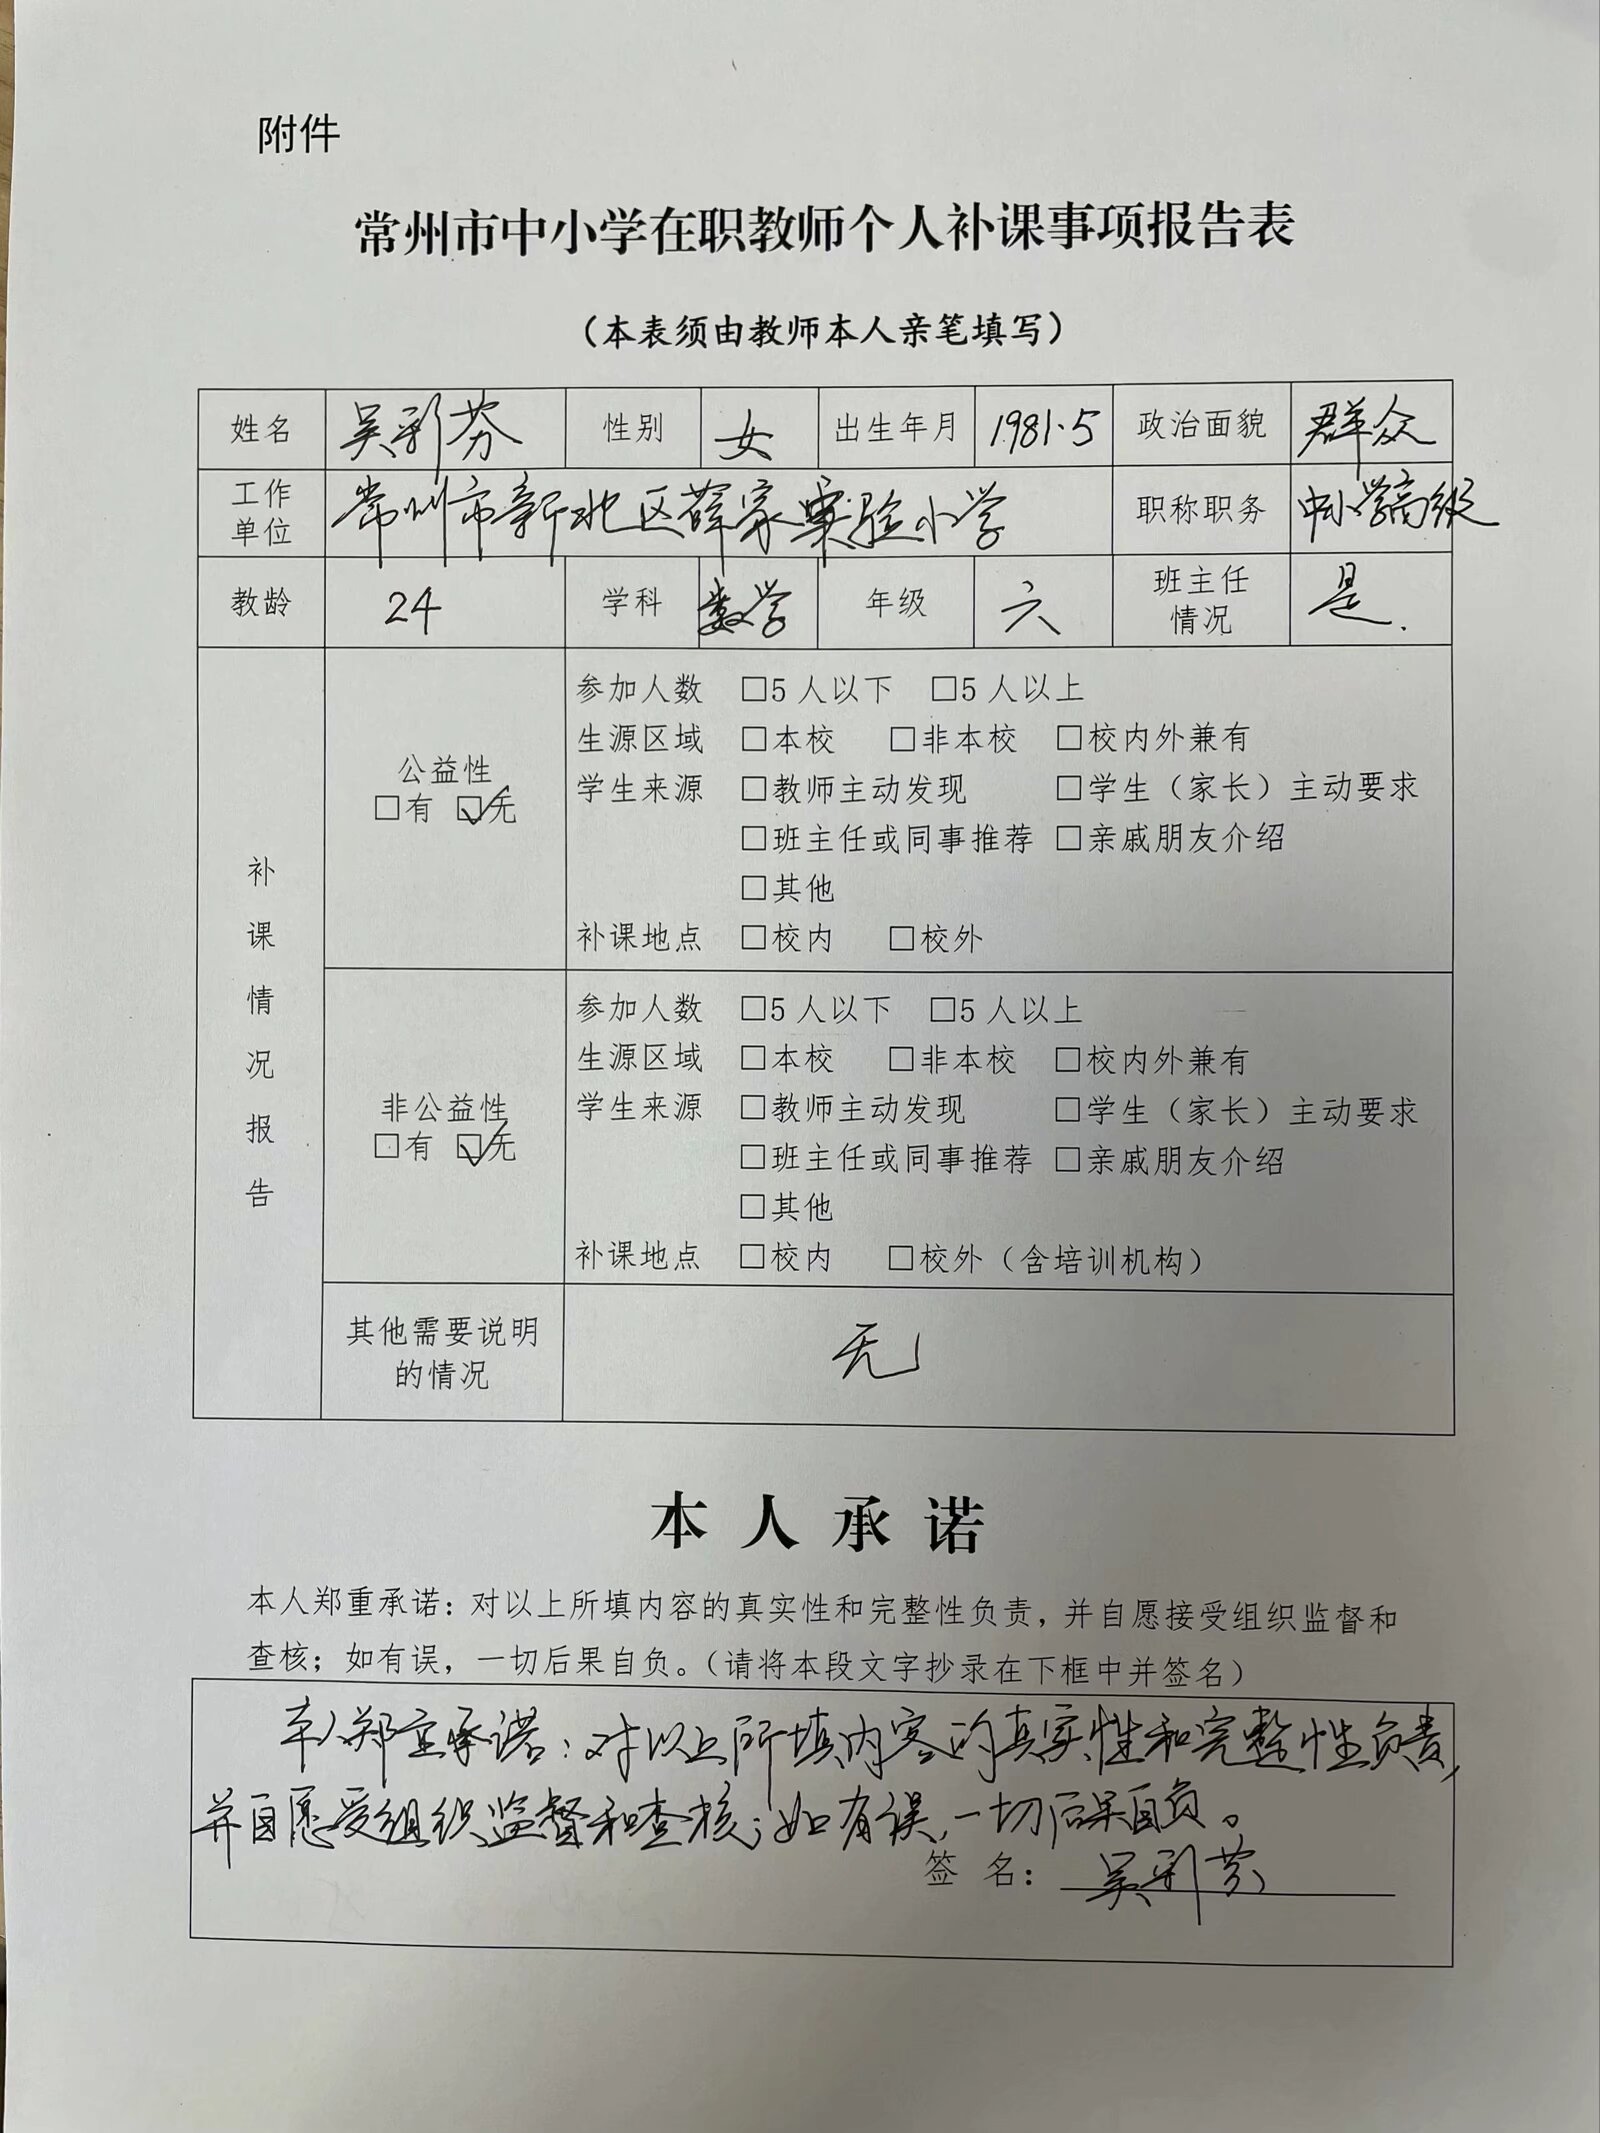 附件
常州市中小学在职教师个人补课事项报告表
（本表须由教师本人亲笔填写）
姓名 吴彩芬 性别 女 出生年月 1981.5 政治面貌 群众
工作单位 常州市新北区薛家实验小学 职称职务 中小学高级
教龄 24 学科 数学 年级 六 班主任情况 是.
补课情况报告
公益性
□有 ☑无
参加人数 □5人以下 □5人以上
生源区域 □本校 □非本校 □校内外兼有
学生来源 □教师主动发现 □学生（家长）主动要求
□班主任或同事推荐 □亲戚朋友介绍
□其他
补课地点 □校内 □校外
非公益性
□有 ☑无
参加人数 □5人以下 □5人以上
生源区域 □本校 □非本校 □校内外兼有
学生来源 □教师主动发现 □学生（家长）主动要求
□班主任或同事推荐 □亲戚朋友介绍
□其他
补课地点 □校内 □校外（含培训机构）
其他需要说明的情况 无
本人承诺
本人郑重承诺：对以上所填内容的真实性和完整性负责，并自愿接受组织监督和
查核；如有误，一切后果自负。（请将本段文字抄录在下框中并签名）
本人郑重承诺：对以上所填内容的真实性和完整性负责，
并自愿受组织监督和查核；如有误，一切后果自负。
签名：吴彩芬